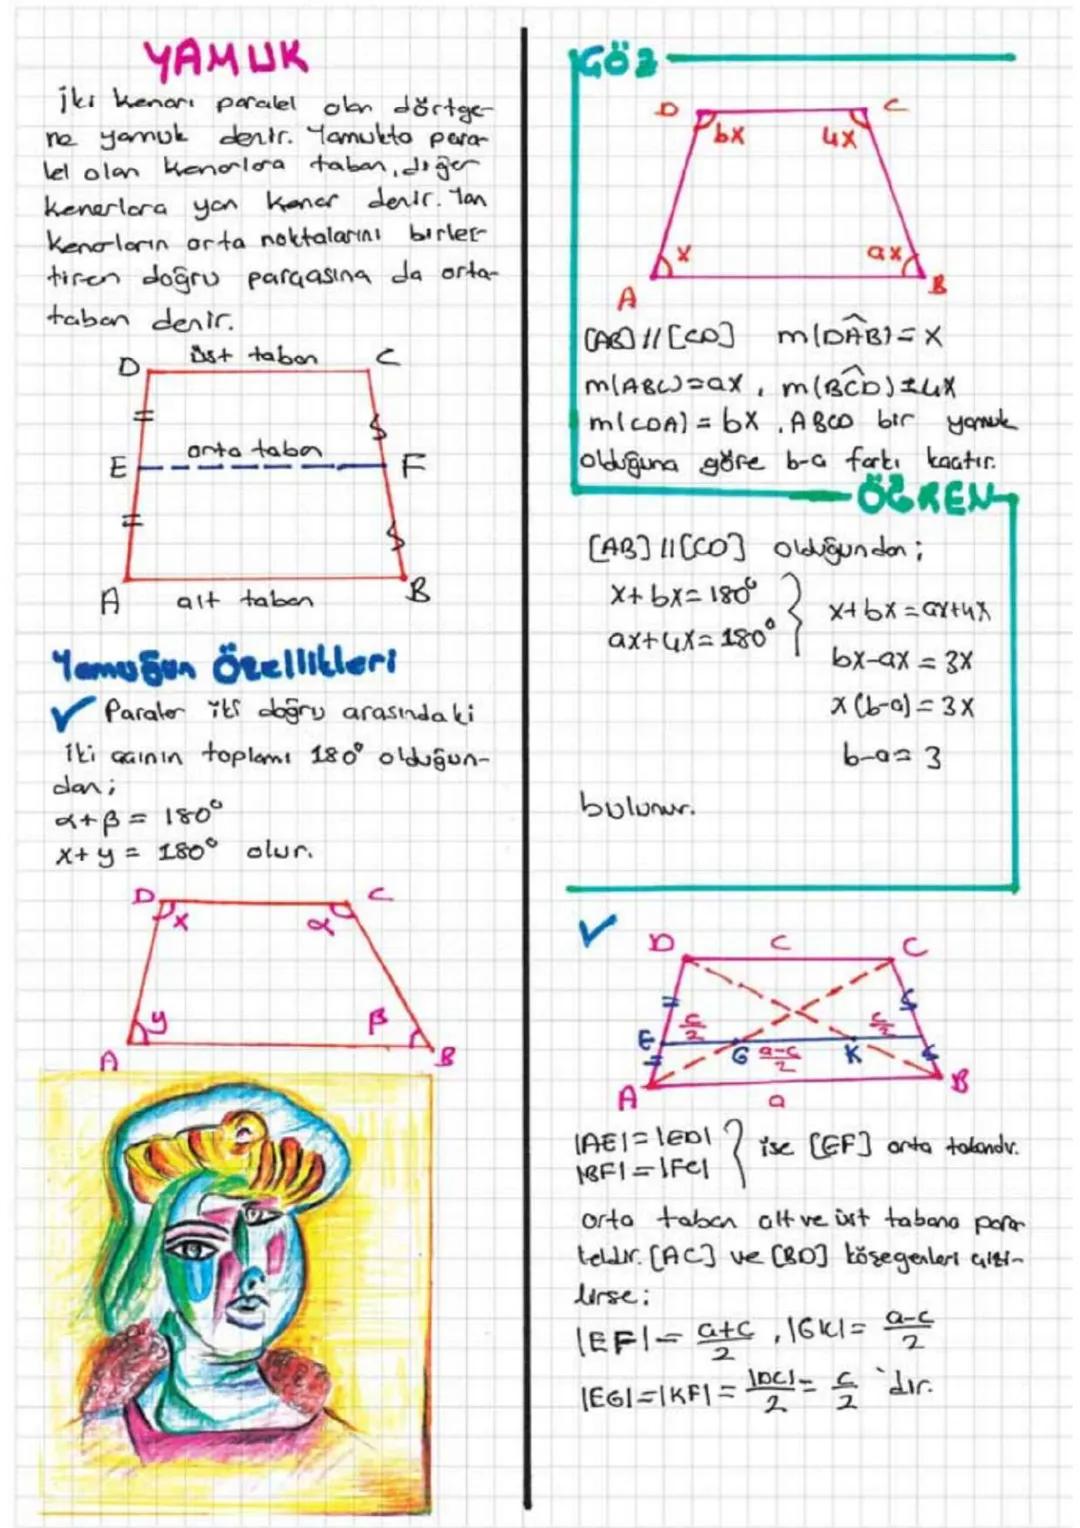 YAMUK
İki kenarı paralel olan dörtge-
ne yamuk denir. Yamukta para-
lel olan kenarlara taban, diğer
kenarlara yan kenar denir. Yan
kenarların orta noktalarını birleş-
tiren doğru parçasına da orta-
taban denir.
D üst taban C
E orta taban F
A alt taban B
Yamuğun Özellikleri
✓ Paralel iki doğru arasındaki
iki açının toplamı 180° olduğun-
dan;
α+β = 180°
x+y = 180° olur.
D C
x α
y β
A B
GÖZ
D C
bx 4x
x ax
A B
[AB] // [CD] m(DÂB) = x
m(ABC)=ax, m(BĈD)=4x
m(CDA) = bx, ABCD bir yamuk
olduğuna göre b-a farkı kaçtır.
ÖĞREN
[AB] // [CD] olduğundan;
x+bx=180°
ax+4x=180°
x+bx=ax+4x
bx-ax = 3x
x(b-a) = 3x
b-a= 3
bulunur.
✓
D c C
E c/2 G a-c/2 K c/2
A a B
|AE|=|ED|
|BF|=|FC|
ise [EF] orta tabandır.
orta taban alt ve üst tabana para-
leldir. [AC] ve [BD] köşegenleri çizi-
lirse;
|EF|= a+c/2, |GK|= a-c/2
|EG|=|KF|= |DC|/2 = c/2 'dir.